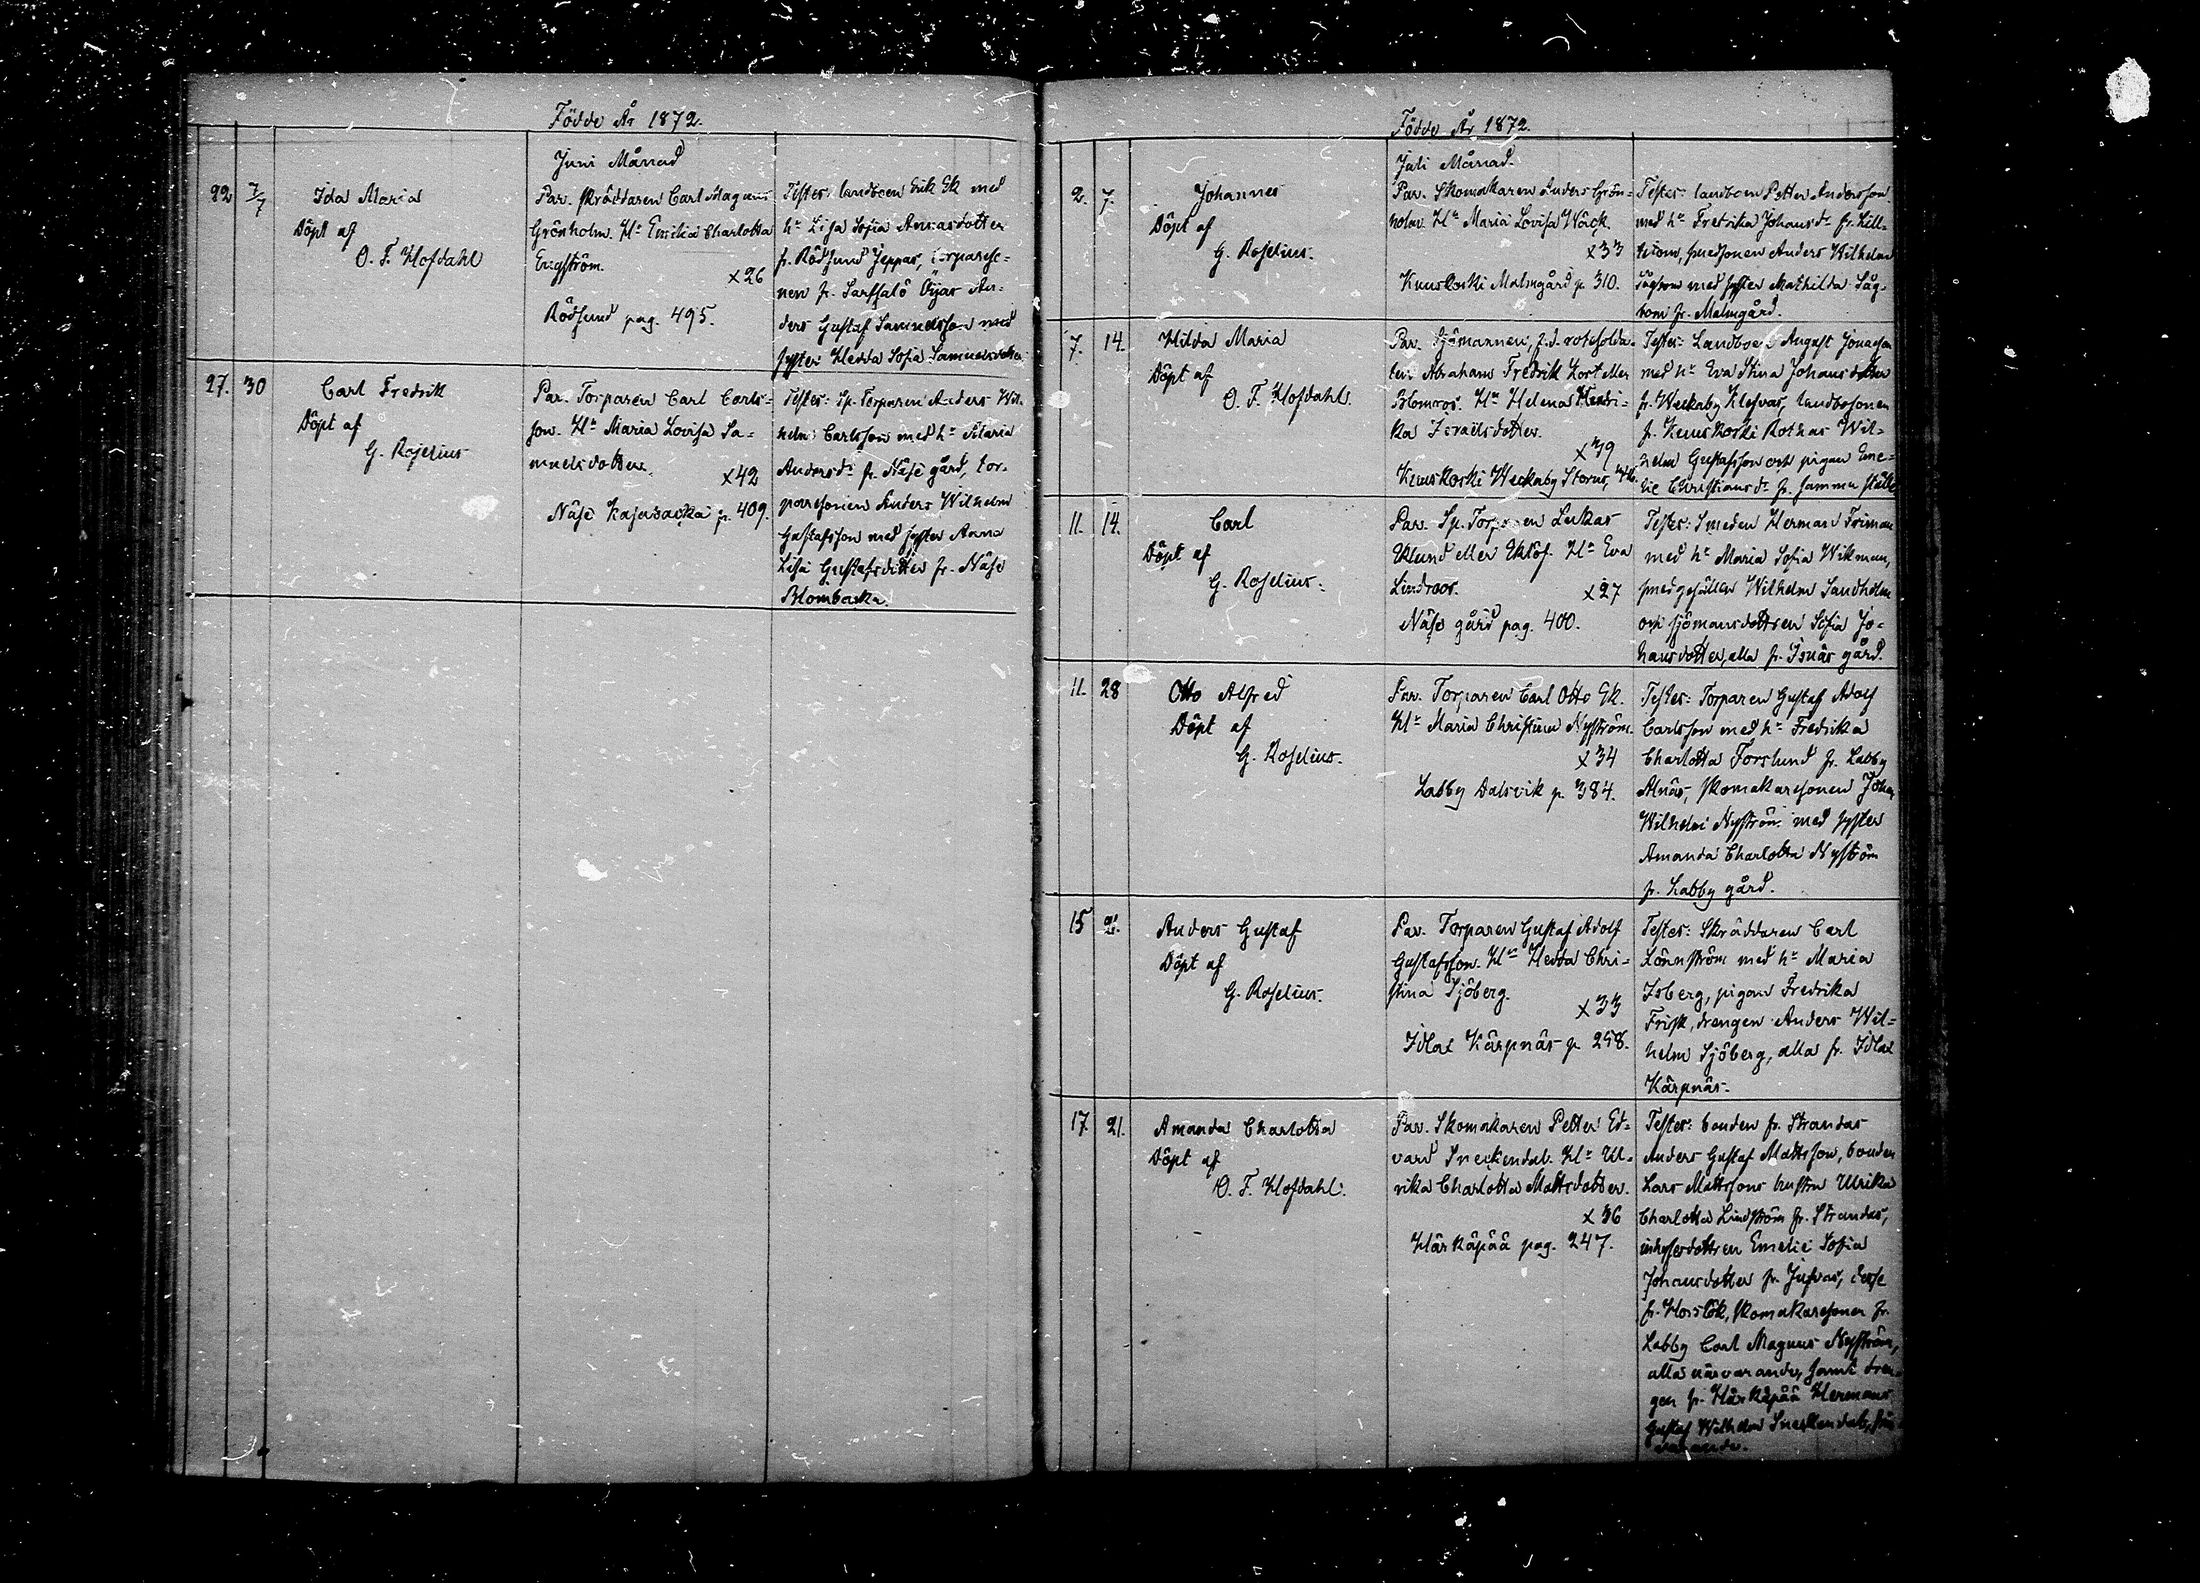 Födde År 1872.
Juni Månad
22 7/7 Ida Maria
Döpt af
O. F. Hofdahl
Par. Skräddaren Carl Magnus
Grönholm. H:u Emilia Charlotta
Engström.
x26
Rödsund pag. 495.
Testes: landboen Erik Ek med
h:u Lisa Sofia Annasdotter
fr. Rödsund Jeppas, torpareso-
nen fr. Sarfsalö Öijar An-
ders Gustaf Samuelsson med
syster Hedda Sofia Samuelsdotter
27. 30 Carl Fredrik
Döpt af
G. Roselius
Par. Torparen Carl Carls-
son. H:u Maria Lovisa Sa-
muelsdotter.
x42
Näse Kajabacka p. 409.
Testes: Sp. Torparen Anders Wil-
helm Carlsson med h:u Maria
Andersd:r fr. Näse gård, tor-
paresonen Anders Wilhelm
Gustafsson med syster Anna
Lisa Gustafsdotter fr. Näse
Blombacka.
Födde År 1872.
Juli Månad.
2. 7. Johannes
Döpt af
G. Roselius.
Par. Skomakaren Anders Grön-
holm. H:u Maria Lovisa Wäck.
x33
Kuuskoski Malmgård p. 310.
Testes: landboen Petter Andersson
med h:u Fredrika Johansd:r fr. Hill-
smedsonen Anders Wilhelm
med syster Mathilda Såg-
bom fr. Malmgård.
7. 14. Hilda Maria
Döpt af
O. F. Hofdahl.
Par. Sjömannen, f.d. rotesolda-
ten Abraham Fredrik Kort eller
Blomroos. H:u Helena Hendri-
ka Israelsdotter.
x39
Kuuskoski Weckaby Storus,
Testes: Landboen August Jonasson
med h:u Eva Stina Johansdotter
fr. Weckaby Klefvas, landbosonen
fr. Kuuskoski Rothas Wil-
helm Gustafsson och pigan Eme-
lie Christiansd:r fr. samma ställe
11. 14. Carl
Döpt af
G. Roselius.
Par. Sp. Torparen Lukas
Eklund eller Eklöf. H:u Eva
Lindroos.
x27
Näse gård pag. 400.
Testes: Smeden Herman Friman
med h:u Maria Sofia Wikman,
smedgesällen Wilhelm Sandholm
och sjömansdottren Sofia Jo-
hansdotter, alla fr. Isnäs gård.
11. 28 Otto Alfred
Döpt af
G. Roselius.
Par. Torparen Carl Otto Ek.
H:u Maria Christina Nyström.
x34
Labby Dalsvik p. 384.
Testes: Torparen Gustaf Adolf
Carlsson med h:u Fredrika
Charlotta Forslund fr. Labby
Alnäs, skomakaresonen Johan
Wilhelm Nyström med syster
Amanda Charlotta Nyström
fr. Labby gård.
15 21. Anders Gustaf
Döpt af
G. Roselius.
Par. Torparen Gustaf Adolf
Gustafsson. H:u Hedda Chri-
stina Sjöberg.
x33
Idlax Kärpnäs p. 258.
Testes: Skräddaren Carl
Lönnström med h:u Maria
Isberg, pigan Fredrika
Frisk, drengen Anders Wil-
helm Sjöberg, alla fr. Idlax
Kärpnäs.
17. 21. Amanda Charlotta
Döpt af
O. F. Hofdahl.
Par. Skomakaren Petter Ed-
vard Sneckendal. H:u Ul-
rika Charlotta Mattsdotter.
x36
Härkäpää pag. 247.
Testes: bonden fr. Strandas
Anders Gustaf Mattsson, bonden
Lars Mattssons hustru Ulrika
Charlotta Lindström fr. Strandas,
inhyserdottren Emelie Sofia
Johansdotter fr. Jusvas, desse
fr. Horslök, skomakaresonen fr.
Labby Carl Magnus Nyström,
alla närvarande, samt dren-
gen fr. Härkäpää Hermans
Gustaf Wilhelm Sneckendal, från-
varande.